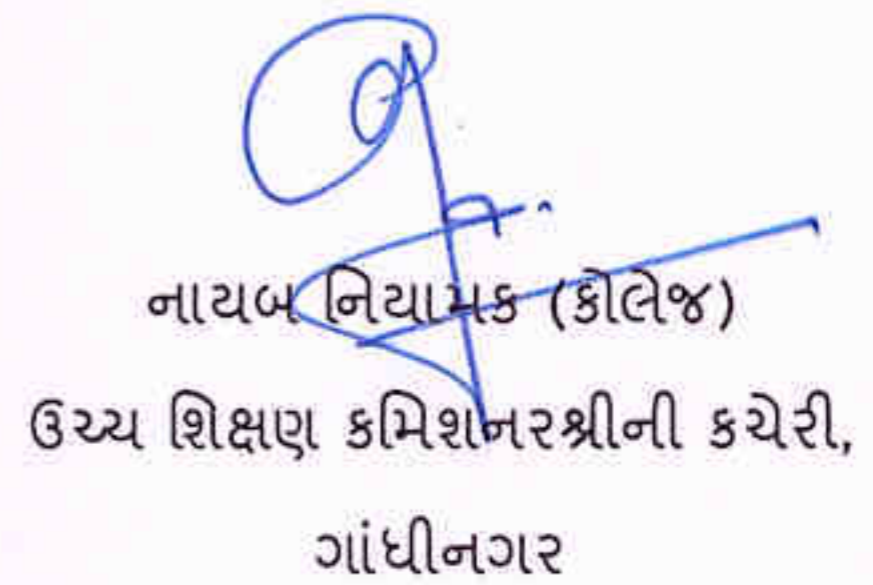 નાયબ નિયામક (કોલેજ)
ઉચ્ચ શિક્ષણ કમિશનરશ્રીની કચેરી,
ગાંધીનગર